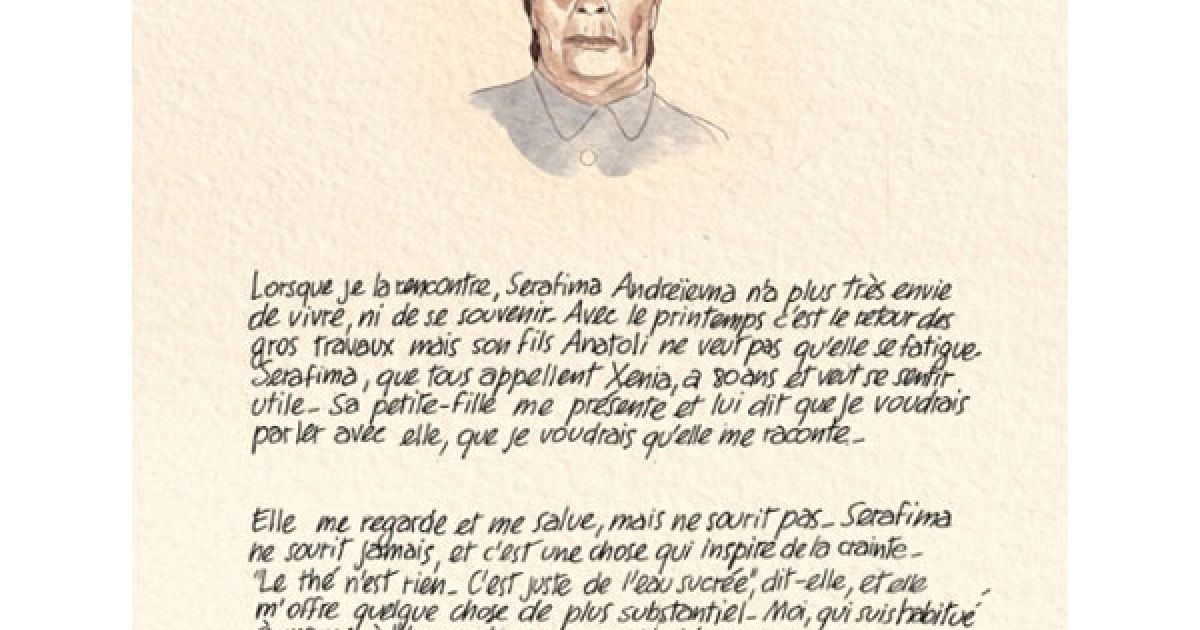 Lorsque je la rencontre, Serafima Andreïevna n'a plus très envie
de vivre, ni de se souvenir_ Avec le printemps c'est le retour des
gros travaux mais son fils Anatoli ne veut pas qu'elle se fatigue_
Serafima, que tous appellent Xenia, a 80 ans et veut se sentir
utile_ Sa petite-fille me présente et lui dit que je voudrais
parler avec elle, que je voudrais qu'elle me raconte_
Elle me regarde et me salue, mais ne sourit pas_ Serafima
ne sourit jamais, et c'est une chose qui inspire de la crainte_
"Le thé n'est rien_ C'est juste de l'eau sucrée", dit-elle, et elle
m'offre quelque chose de plus substantiel_ Moi, qui suis habitué